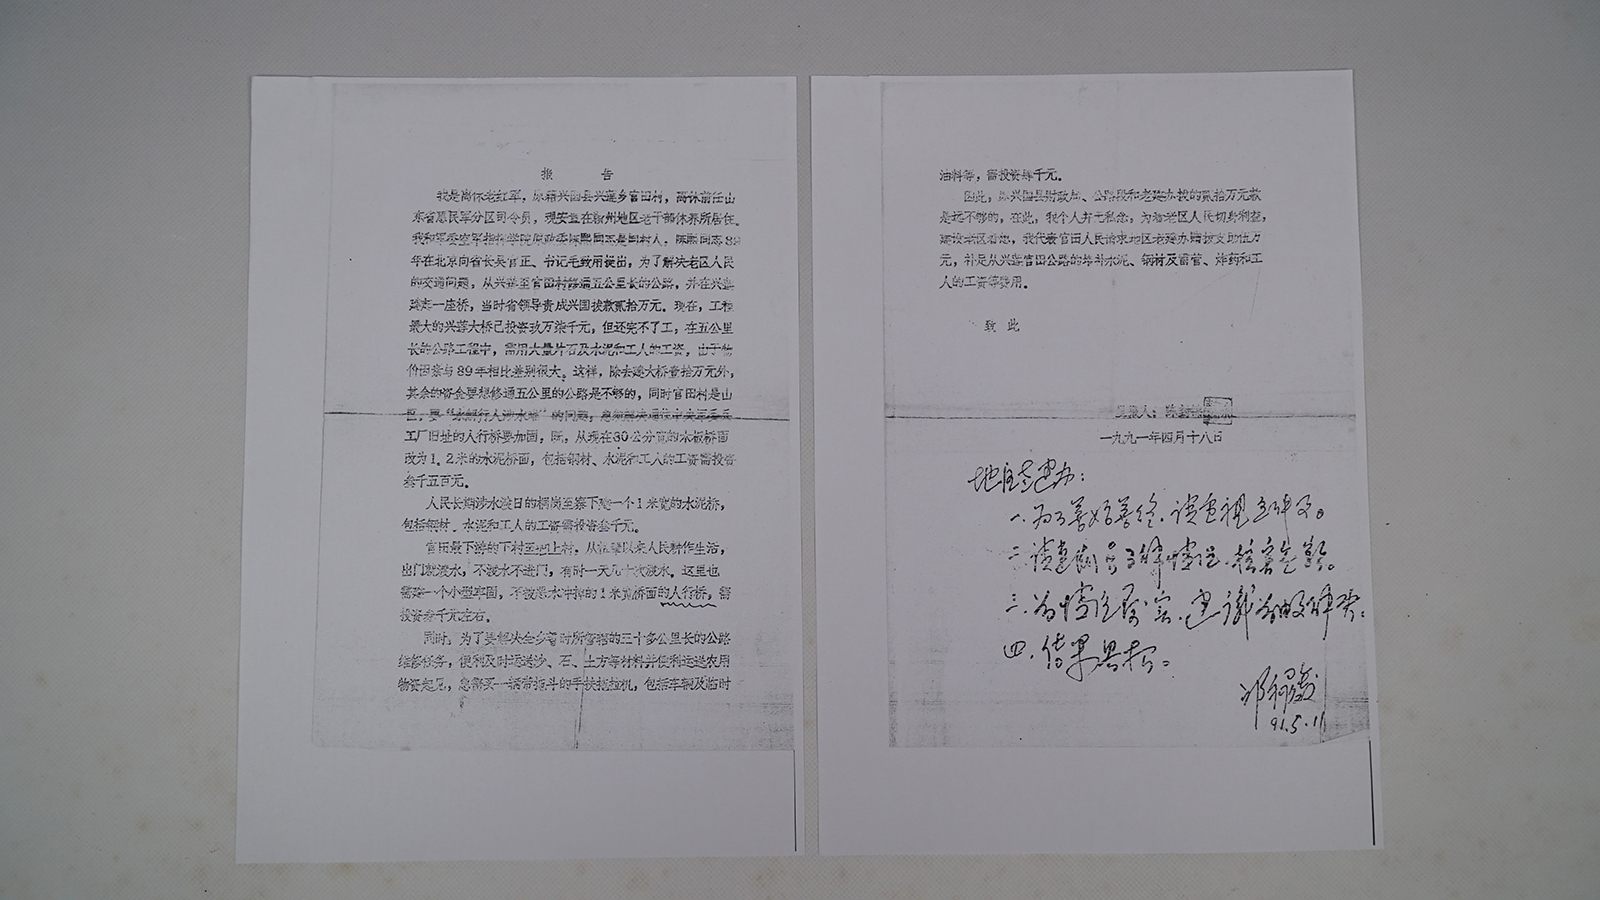 报 告
我是离休老红军，原籍兴国县兴莲乡官田村，离休前任山
东省惠民军分区司令员，现安置在赣州地区老干部休养所居住。
我和军委空军指挥学院原政委陈熙同志是同村人，陈熙同志89
年在北京向省长吴官正、书记毛致用提出，为了解决老区人民
的交通问题，从兴莲至官田村修通五公里长的公路，并在兴莲
建造一座桥，当时省领导责成兴国拨款贰拾万元。现在，工程
最大的兴莲大桥已投资玖万柒千元，但还完不了工，在五公里
长的公路工程中，需用大量片石及水泥和工人的工资，由于物
价因素与89年相比差别很大。这样，除去建大桥壹拾万元外，
其余的资金要想修通五公里的公路是不够的，同时官田村是山
区，要解决行人涉水难的问题，急须解决通往中央军委兵
工厂旧址的人行桥要加固，既，从现在30公分宽的木板桥面
改为1.2米的水泥桥面，包括钢材、水泥和工人的工资需投资
叁千五百元。
人民长期涉水渡日的桐岗至寨下建一个1米宽的水泥桥，
包括钢材、水泥和工人的工资需投资叁千元。
官田最下游的下村至地上村，从以来人民耕作生活，
出门就渡水，不渡水不进门，有时一天几十次渡水。这里也
需建一个小型牢固，不被洪水冲掉的1米宽桥面的人行桥，需
投资叁千元左右。
同时，为了要解决全乡暂时所管辖的三十多公里长的公路
维修任务，便利及时运送沙、石、土方等材料并便利运送农用
物资起见，急需买一辆带拖斗的手扶拖拉机，包括车辆及临时
油料等，需投资肆千元。
因此，原兴国县财政局、公路段和老建办拨的贰拾万元款
是远不够的，在此，我个人并无私念，为着老区人民切身利益，
建设老区着想，我代表官田人民请求地区老建办赠拨支助伍万
元，补足从兴莲官田公路的峰补水泥、钢材及雷管、炸药和工
人的工资等费用。
致 此
呈报人：陈
一九九一年四月十八日
地区老建办：
一、为了善始善终，请重视这件事。
二、请遣员了解情况，核实定断。
三、若情况属实，建议给解决。
四、结果界报。
邓
91.5.11